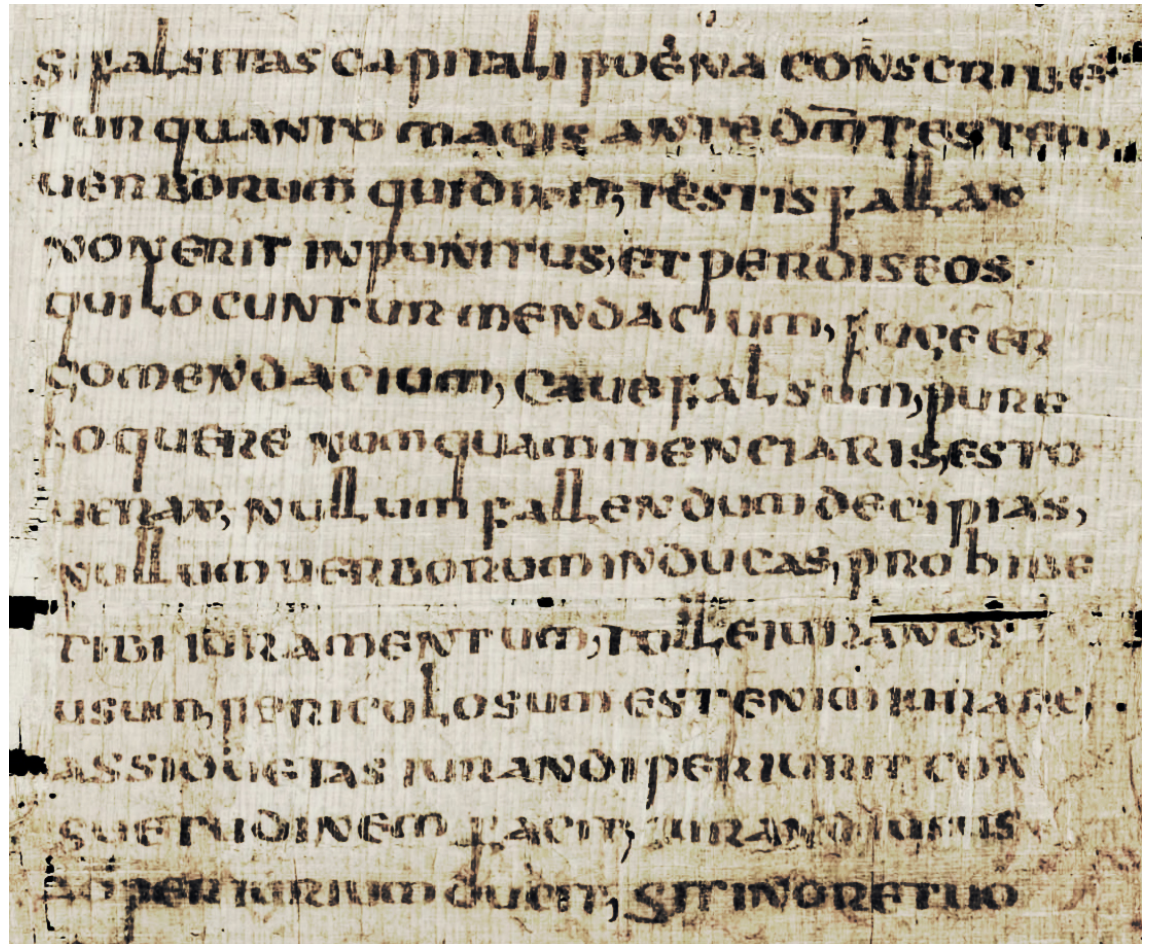 si falsitas capitali poena conscribe
tur quanto magis ante dm̅ testem
uerborum qui dixit, testis fallax
non erit inpunitus, et perdis eos
qui locuntur mendacium, fuge er
go mendacium, caue falsum, pure
loquere numquam menciaris, esto
uerax, nullum fallendum decipias,
nullum uerborum inducas, prohibe
tibi iuramentum, tolle iurandi
usum, periculosum est enim iurare,
assiduetas iurandi periurii con
suetudinem facit, iurandi usus
ad periurium ducit, sit in ore tuo